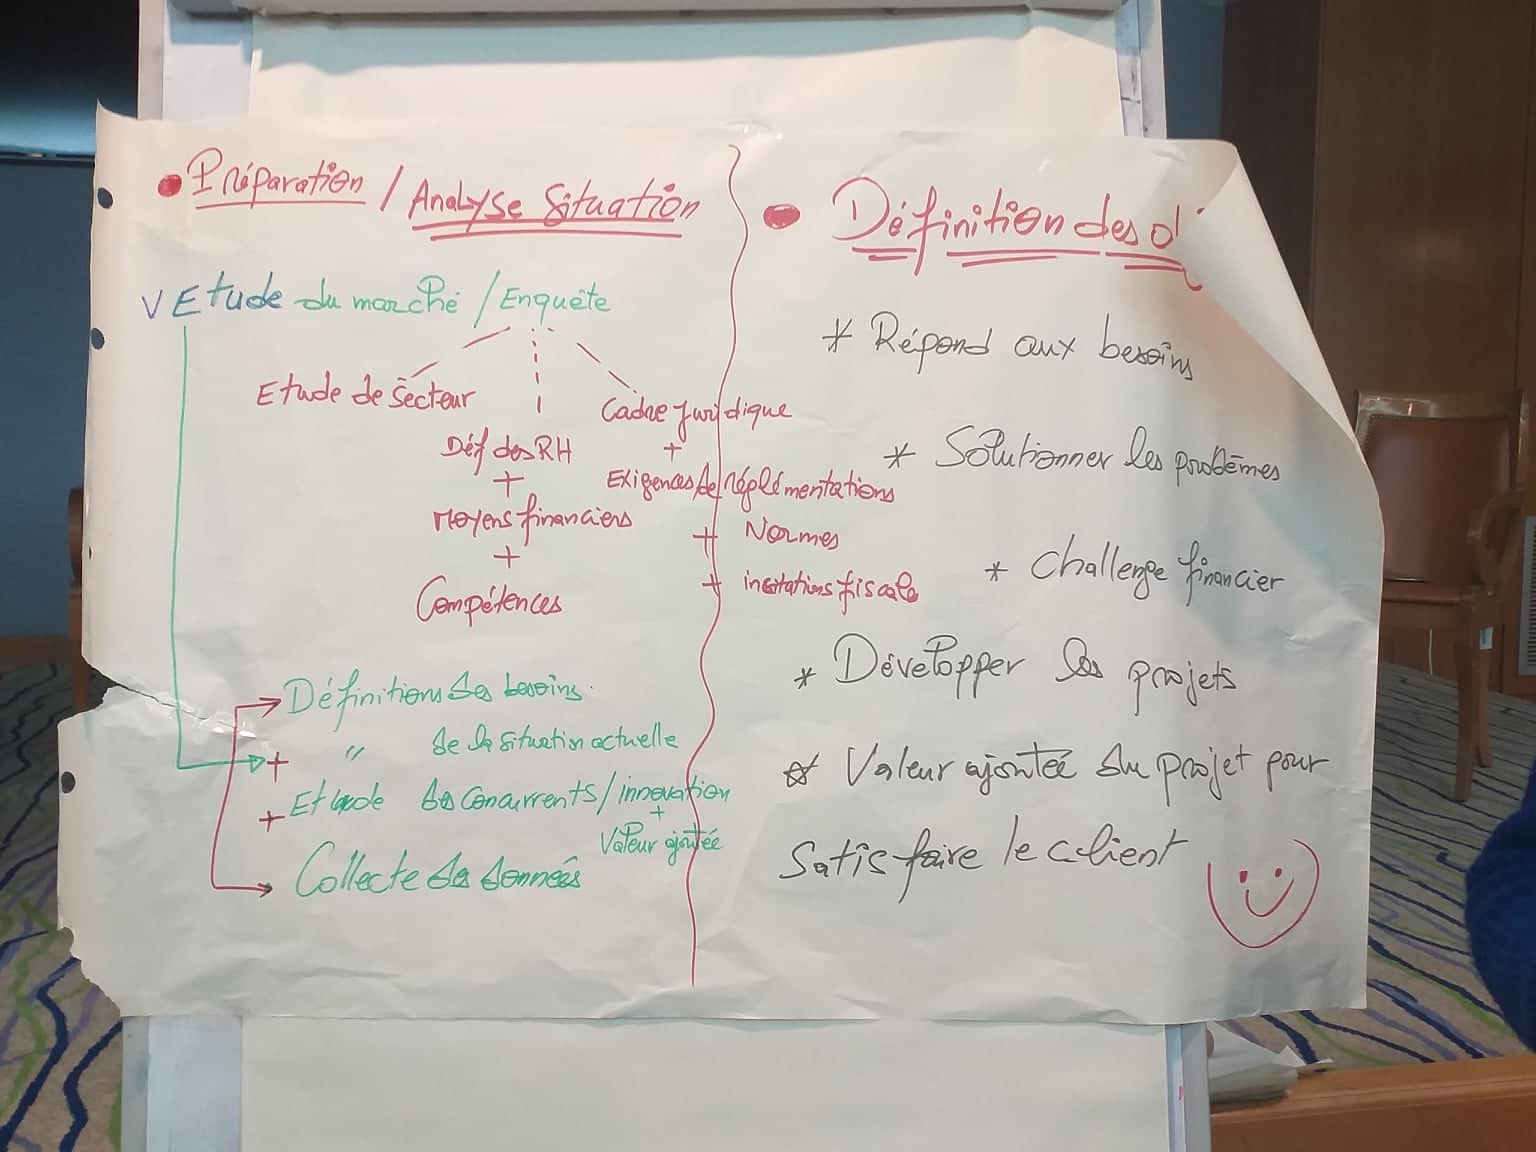 Préparation / Analyse Situation
V Etude du marché / Enquête
Etude de Secteur
Déf des RH
+
Moyens financiers
+
Compétences
Cadre juridique
+
Exigences de réglémentations
+ Normes
+ incitations fiscale
Définitions des besoins.
+ " de la situation actuelle
+ Etude des concurrents / innovation
+
Valeur ajoutée
Collecte des données
Définition des
* Répond aux besoins
* Solutionner les problèmes
* Challenge financier
* Développer les projets
* Valeur ajoutée du projet pour
Satisfaire le client